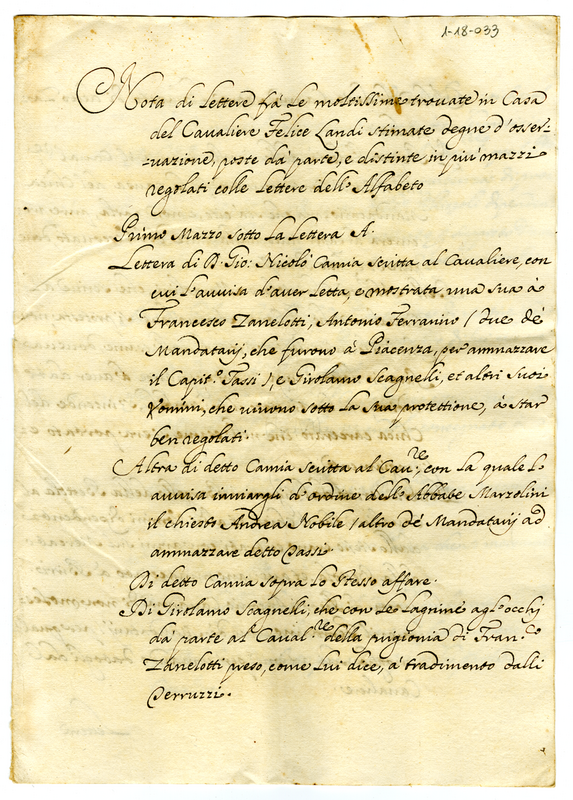 1-18-033
Nota di Lettere frà le moltissime trovate in Casa
del Cavaliere Felice Landi stimate degne d'osser-
-vazione, poste dà parte, e distinte in più mazzi
regolati colle Lettere dell'Alfabeto
Primo Mazzo sotto La Lettera A.
Lettera di D. Gio: Nicolò Camia scritta al Cavaliere, con
cui l'avvisa d'aver Letta, e mostrata una sua à
Francesco Zanelotti, Antonio Ferranino / due dè
Mandatarij, che furono à Piacenza, per ammazzare
il Capit.o Tassi /, e Girolamo Scagnelli, et altri suoi
Uomini, che vivono sotto La sua protettione, à star
ben regolati.
Altra di detto Camia scritta al Cav.re, con La quale L'
avvisa inviargli d'ordine dell'Abbate Marzolini
il chiesto Andrea Nobile / altro dè Mandatarij ad
ammazzare detto Tassi.
Di detto Camia sopra Lo stesso affare.
Di Girolamo Scagnelli, che con Le Lagrime agl'occhi
dà parte al Caval.re della prigionia di Fran.co
Zanelotti preso, come Lui dice, à tradimento dalli
Ferruzzi.